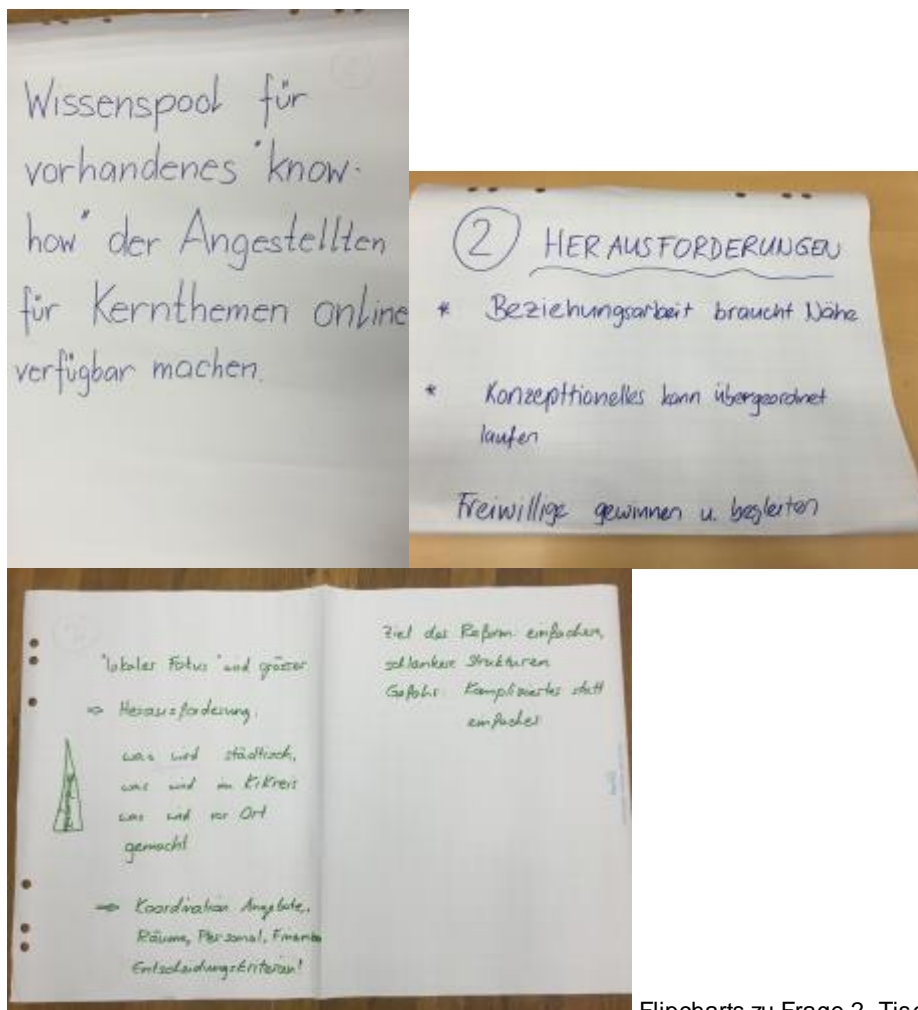 Wissenspool für
vorhandenes "know-
how" der Angestellten
für Kernthemen online
verfügbar machen.
2 HERAUSFORDERUNGEN
* Beziehungsarbeit braucht Nähe
* Konzepttionelles kann übergeordnet
laufen
Freiwillige gewinnen u. begleiten
"lokaler Fokus" und grösser
⇒ Herausforderung:
was wird städtisch,
was wird im KiKreis
was wird vor Ort
gemacht
⇒ Koordination Angebote,
Räume, Personal, Finanzen
Entscheidungskriterien!
Ziel der Reform einfachere,
schlankere Strukturen
Gefahr: Kompliziertes statt
einfacher
Flipcharts zu Frage 2